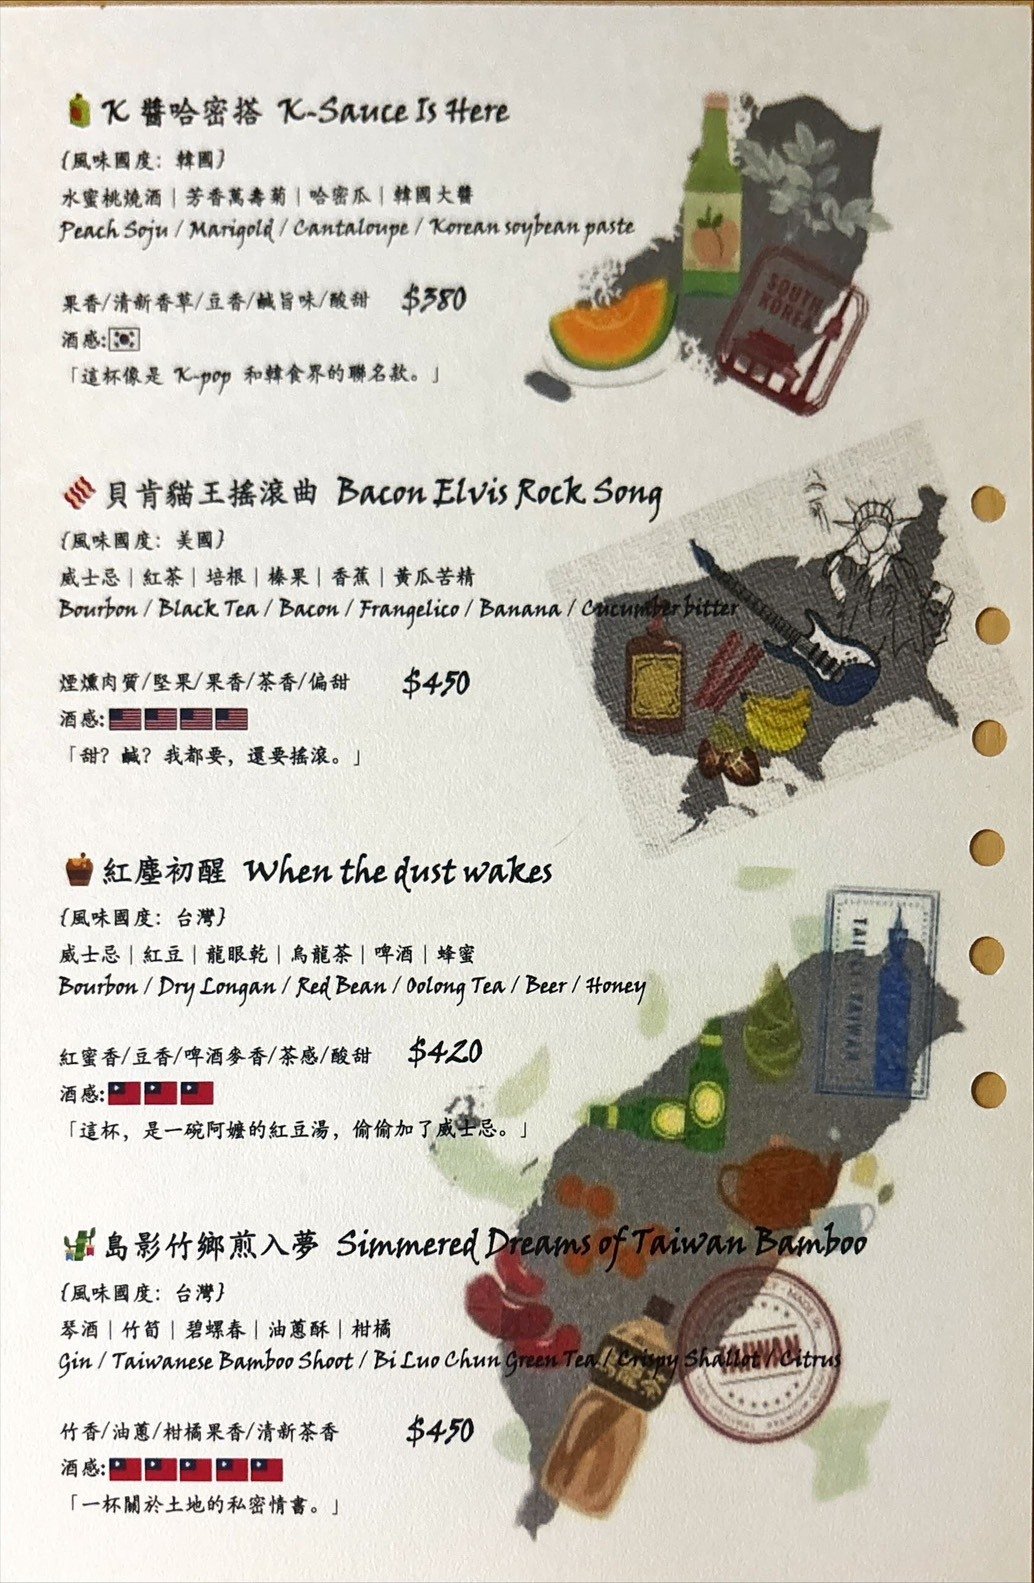 K 醬哈密搭 K-Sauce Is Here
{風味國度: 韓國}
水蜜桃燒酒｜芳香萬壽菊｜哈密瓜｜韓國大醬
Peach Soju / Marigold / Cantaloupe / Korean soybean paste
果香/清新香草/豆香/鹹旨味/酸甜 $380
酒感:
「這杯像是 K-pop 和韓食界的聯名款。」
SOUTH
KOREA
貝肯貓王搖滾曲 Bacon Elvis Rock Song
{風味國度: 美國}
威士忌｜紅茶｜培根｜榛果｜香蕉｜黃瓜苦精
Bourbon / Black Tea / Bacon / Frangelico / Banana / Cucumber bitter
煙燻肉質/堅果/果香/茶香/偏甜 $450
酒感:
「甜? 鹹? 我都要, 還要搖滾。」
紅塵初醒 When the dust wakes
{風味國度: 台灣}
威士忌｜紅豆｜龍眼乾｜烏龍茶｜啤酒｜蜂蜜
Bourbon / Dry Longan / Red Bean / Oolong Tea / Beer / Honey
紅蜜香/豆香/啤酒麥香/茶感/酸甜 $420
酒感:
「這杯, 是一碗阿嬤的紅豆湯, 偷偷加了威士忌。」
TAIPEI TAIWAN
島影竹鄉煎入夢 Simmered Dreams of Taiwan Bamboo
{風味國度: 台灣}
琴酒｜竹筍｜碧螺春｜油蔥酥｜柑橘
Gin / Taiwanese Bamboo Shoot / Bi Luo Chun Green Tea / Crispy Shallot / Citrus
竹香/油蔥/柑橘果香/清新茶香 $450
酒感:
「一杯關於土地的私密情書。」
MADE IN
TAIWAN